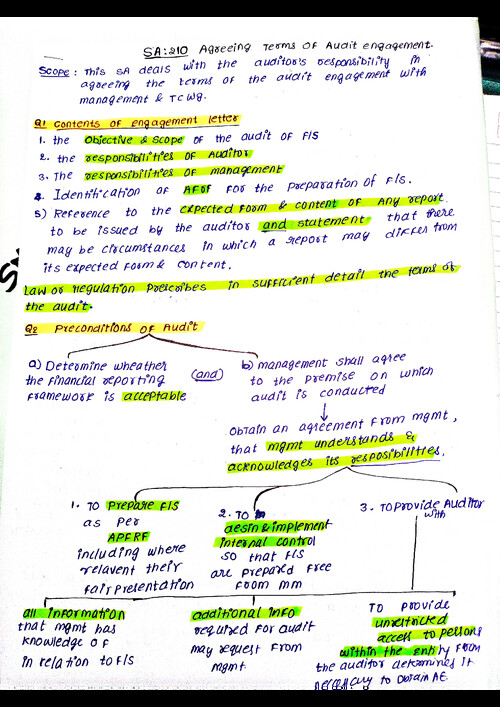 SA:210 Agreeing Terms Of Audit engagement.
Scope: This SA deals with the auditor's responsibility in
agreeing the terms of the audit engagement with
management & TCWG.
Q1 Contents of engagement letter
1. the Objective & Scope of the audit of F/S
2. the responsibilities of Auditor
3. The responsibilities of management
4. Identification of AFRF For the preparation of F/s.
5) Reference to the expected Form & content of Any report
to be issued by the auditor and statement that there
may be circumstances in which a report may differ from
its expected Form & Content.
Law or regulation Prescribes in sufficient detail the terms of
the audit.
Q2 Preconditions of Audit
a) Determine wheather
the financial reporting
Framework is acceptable
(and)
b) management shall agree
to the premise on which
audit is conducted
Obtain an agreement From mgmt,
that mgmt understands &
acknowledges its resposibilities.
1. To Prepare F/s
as Per
APFRF
including where
relavent their
Fair presentation
2. To
desin & implement
internal control
so that F/s
are prepared free
From mm
3. To Provide Auditor
with
all information
that mgmt has
knowledge of
in relation to F/s
additional info
required For audit
may request From
mgmt.
To provide
unrestricted
access to persons
within the entity From
the auditor determines it
necessary to Obtain AE.